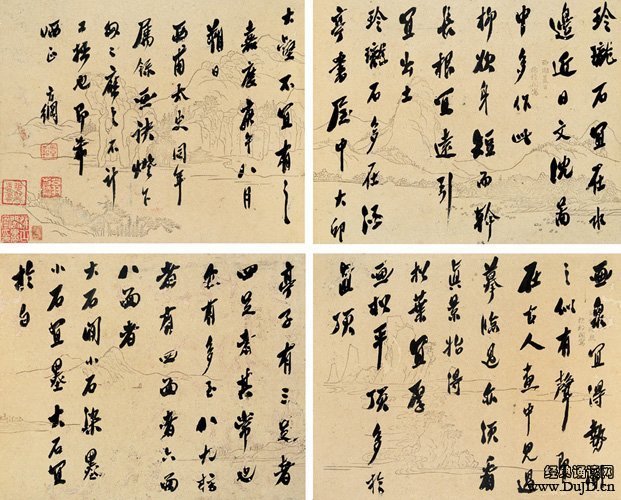 玲瓏石宜在水
邊近日文沈啚
中多作此
柳欲身短而幹
長根宜遠引
宜出土
玲瓏石多在涯
亭書屋中大卯
大壑不宜有之
嘉慶庚午八月
朔日
酉甫太史同年
屬錄画訣燈下
匆匆應之不計
工拙也即希
晒正 方綱
画泉宜得勢聞
之似有聲即
在古人畫中見過
摹臨過亦須看
真景始得
松葉宜厚
画松平頂多於
直頂
亭子有三足者
四足者其常也
然有多至八九柱
者有四面者六面
八面者
大石間小石染墨
小石宜黑大石宜
於白
经典诵读网
www.DujD.cn